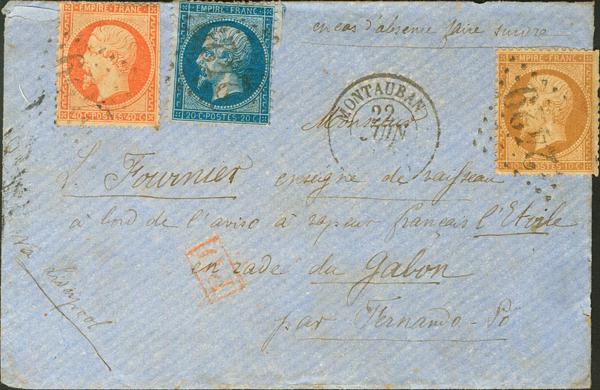 EMPIRE FRANC.
40 C. POSTES 40 C.
EMPIRE FRANC.
20 C. POSTES 20 C.
EMPIRE FRANC.
en cas d'absence faire suivre
MONTAUBAN
22
JUIN
Monsieur
L. Fournier enseigne de vaisseau
à bord de l'aviso à vapeur français l'Etoile
en rade du Gabon
par Fernando-Po
via Liverpool